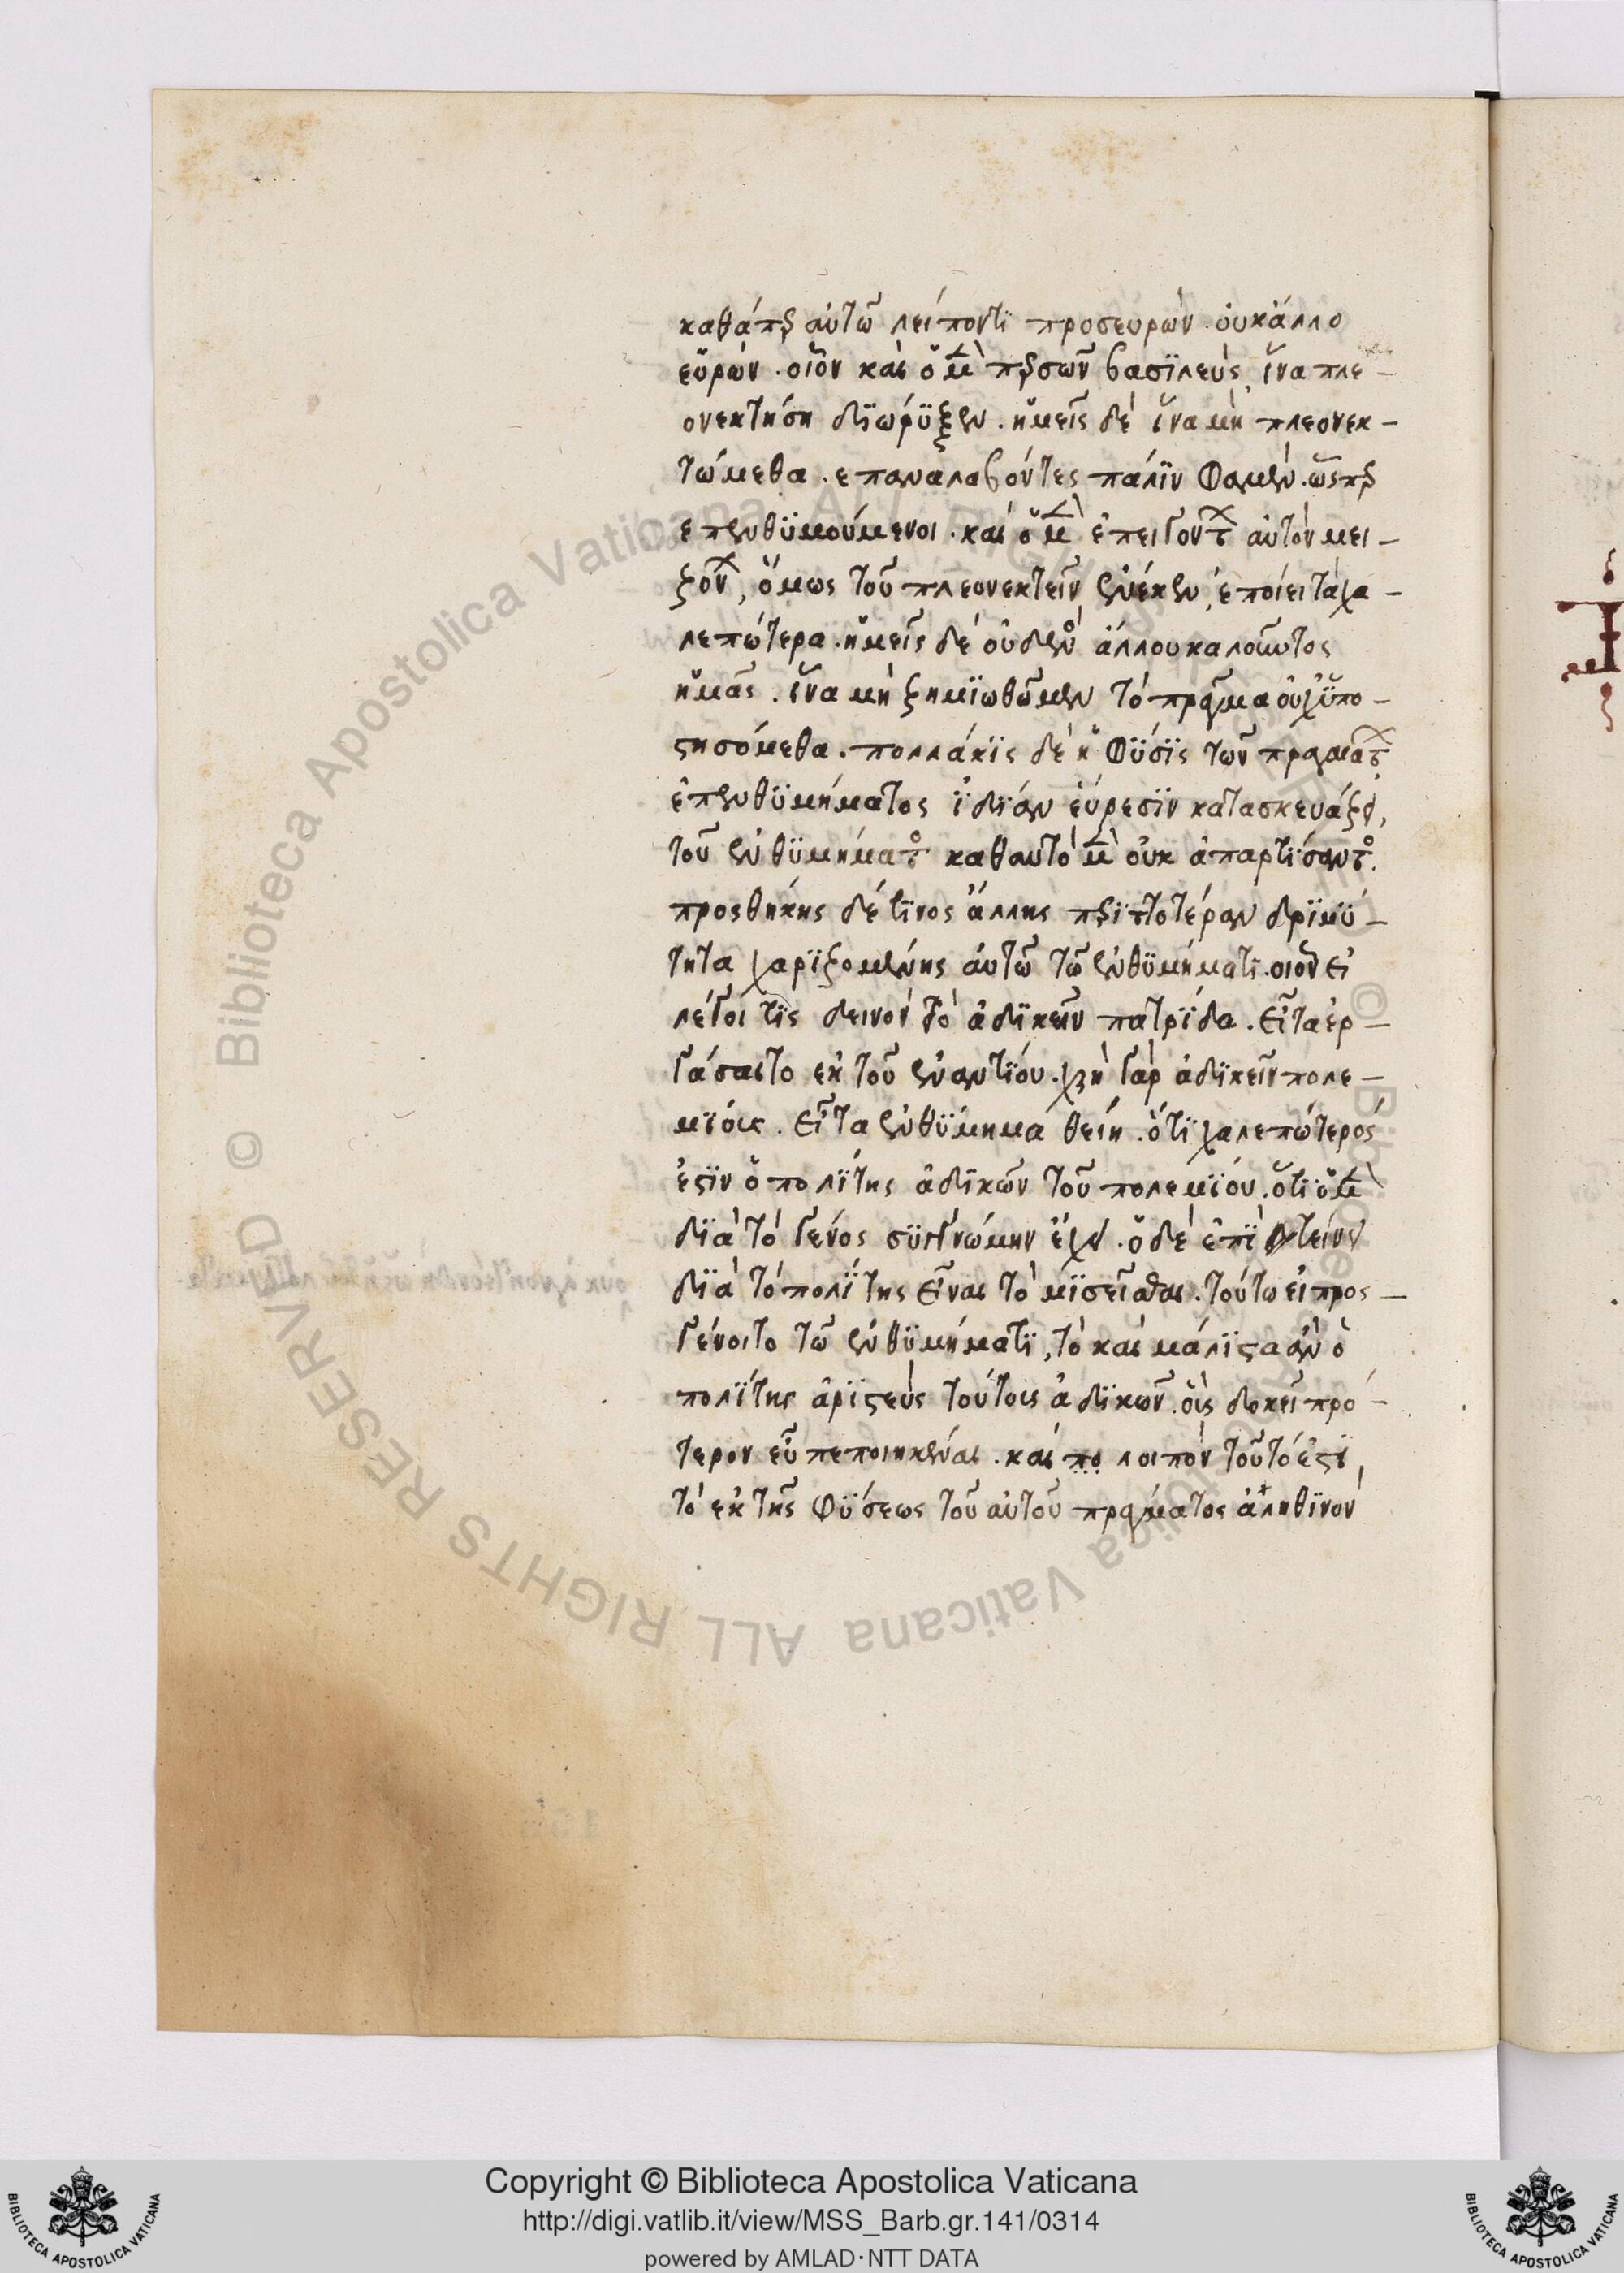 καθάπερ αὐτῶ λείποντι προσευρὼν. οὐκ ἄλλο
εὑρών. οἷον καὶ ὁ μὲν περσῶν βασϊλεὺς, ἵνα πλε-
ονεκτήση διώρϋξεν. ἡμεῖς δὲ ἵνα μὴ πλεονεκ-
τώμεθα. επαναλαβόντες πάλϊν φαμέν. ὥσπερ
επενθϋμούμενοι. καὶ ὁ μὲν ἐπειγόντων αὐτὸν μει-
ζόνων, ὅμως τοῦ πλεονεκτεῖν ἕνεκεν, ἐποίει τὰ χα-
λεπώτερα. ἡμεῖς δὲ οὐδενὸς ἄλλου καλοῦντος
ἡμᾶς. ἵνα μὴ ζημϊωθῶμεν τὸ πρᾶγμα οὐχ ϋπο-
στησόμεθα. πολλάκϊς δὲ ἡ φϋσϊς τῶν πραγμάτων
ἐπενθϋμήματος ϊδίαν εὕρεσϊν κατασκευάζει,
τοῦ ἐνθϋμήματος καθαυτὸ μὲν οὐκ ἀπαρτίσαντος.
προσθήκης δέ τϊνος ἄλλης περϊττοτέραν δρϊμϋ-
τητα χαρϊζομένης αὐτῶ τῶ ἐνθϋμήματϊ. οἷον εἰ
λέγοι τϊς δεινὸν τὸ ἀδϊκεῖν πατρϊδα. εἶτα ἐρ-
γάσαιτο εκ τοῦ ἐναντϊου. χρὴ γὰρ ἀδϊκεῖν πολε-
μϊοις. εἶτα ἐνθϋμημα θείη. ὅτϊ χαλεπώτερός
ἐστϊν ὁ πολϊτης ἀδϊκῶν τοῦ πολεμϊου. ὅτϊ ὁ μὲν
δϊὰ τὸ γένος συγγνώμην ἔχει. ὁ δὲ ἐπϊτείνει
δϊὰ τὸ πολϊτης εἶναι τὸ μϊσεῖσθαι. τούτω εἰ προσ-
γένοιτο τῶ ἐνθϋμήματϊ, τὸ καὶ μάλϊστα ἂν ὁ
πολϊτης ἀρϊστεὺς τούτοις ἀδϊκῶν. οἷς δοκεῖ πρό-
τερον εὖ πεποιηκέναι. καὶ πο λοιπὸν τοῦτό ἐστϊ,
τὸ ἐκ τῆς φϋσεως τοῦ αὐτοῦ πράγματος ἀληθϊνὸν
Copyright © Biblioteca Apostolica Vaticana
http://digi.vatlib.it/view/MSS_Barb.gr.141/0314
powered by AMLAD·NTT DATA
BIBLIOTECA APOSTOLICA VATICANA
BIBLIOTECA APOSTOLICA VATICANA
© Biblioteca Apostolica Vaticana ALL RIGHTS RESERVED